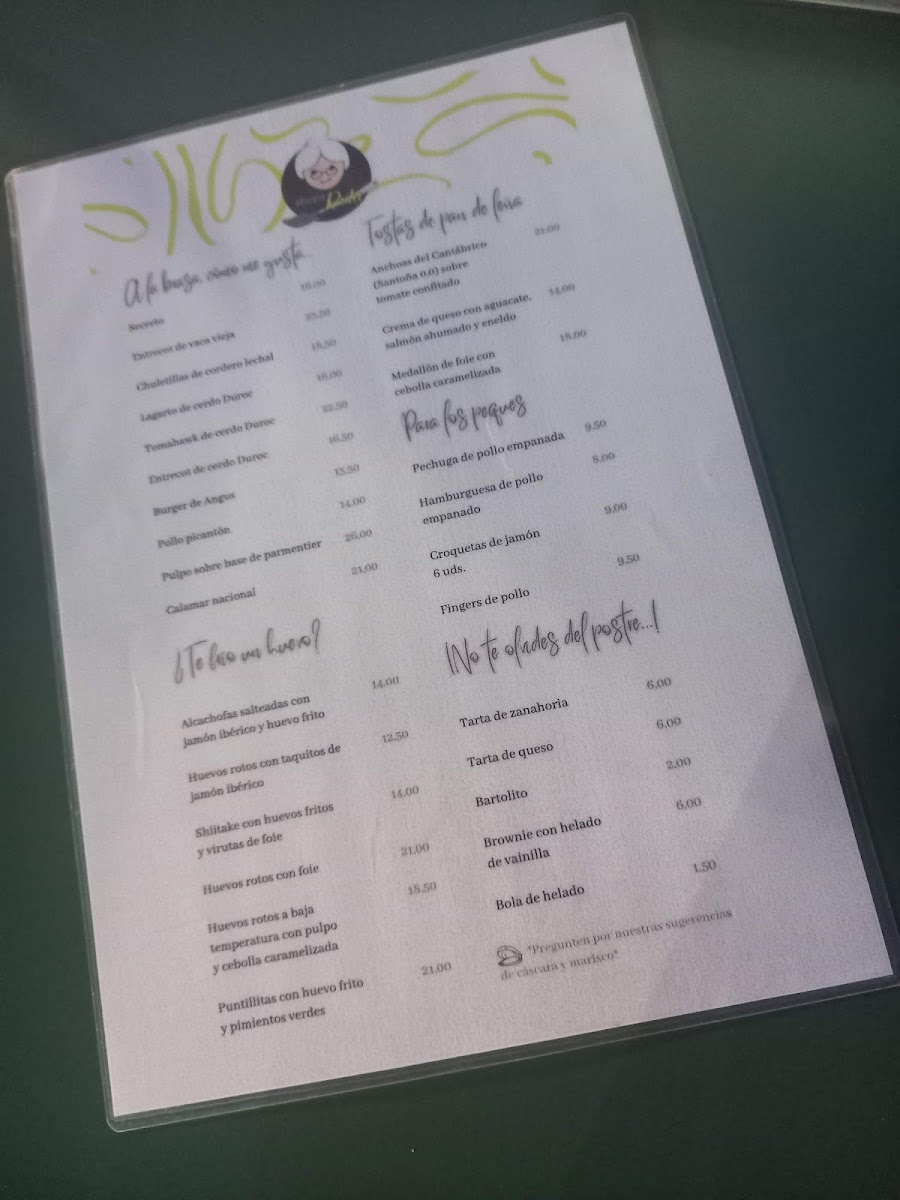 A la brasa, como me gusta...
Secreto 16.00
Entrecot de vaca vieja 23.50
Chuletillas de cordero lechal 18.50
Lagarto de cerdo Duroc 16.00
Tomahawk de cerdo Duroc 22.50
Entrecot de cerdo Duroc 16.50
Burger de Angus 13.50
Pollo picantón 14.00
Pulpo sobre base de parmentier 26.00
Calamar nacional 21.00
¿Te frio un huevo?
Alcachofas salteadas con 14.00
jamón ibérico y huevo frito
Huevos rotos con taquitos de 12.50
jamón ibérico
Shiitake con huevos fritos 14.00
y virutas de foie
Huevos rotos con foie 21.00
Huevos rotos a baja 18.50
temperatura con pulpo
y cebolla caramelizada
Puntillitas con huevo frito 21.00
y pimientos verdes
Tostas de pan de leña
Anchoas del Cantábrico 21.00
(Santoña 0,0) sobre
tomate confitado
Crema de queso con aguacate, 14.00
salmón ahumado y eneldo
Medallón de foie con 18.00
cebolla caramelizada
Para los peques
Pechuga de pollo empanada 9.50
Hamburguesa de pollo 8.00
empanado
Croquetas de jamón 9.00
6 uds.
Fingers de pollo 9.50
¡No te olvides del postre...!
Tarta de zanahoria 6.00
Tarta de queso 6.00
Bartolito 2.00
Brownie con helado 6.00
de vainilla
Bola de helado 1.50
*Pregunten por nuestras sugerencias
de cáscara y marisco*